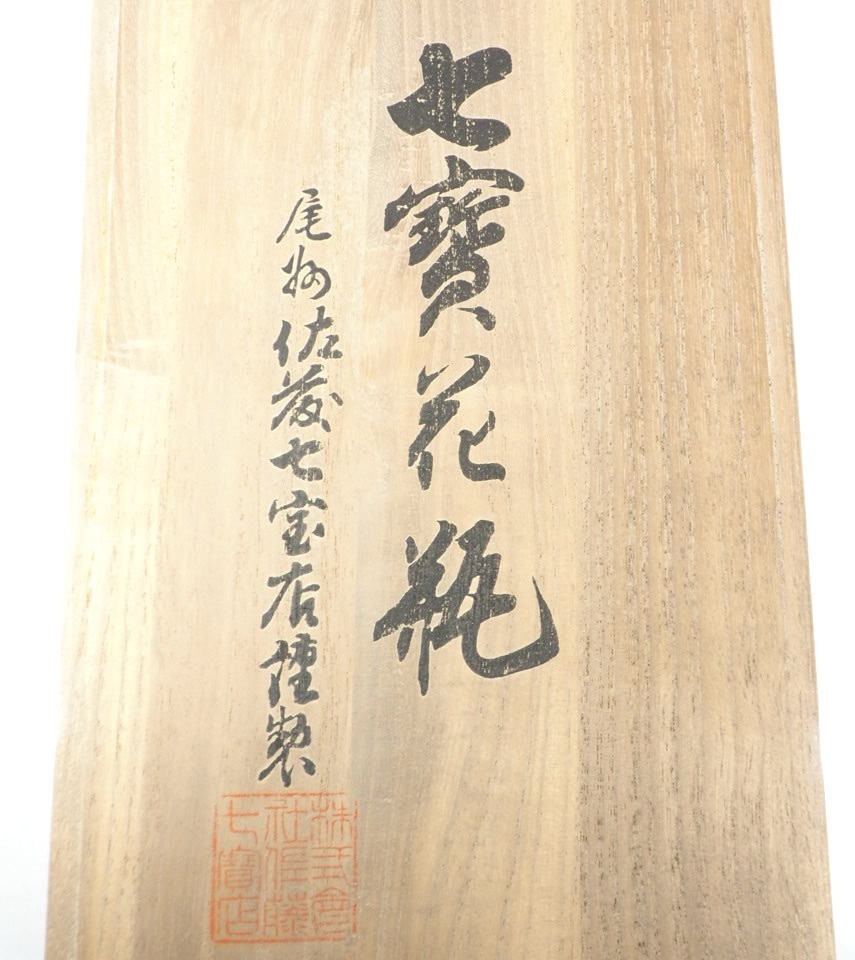 七寳花瓶
尾州佐藤七宝店謹製
株式會
社佐藤
七寳店